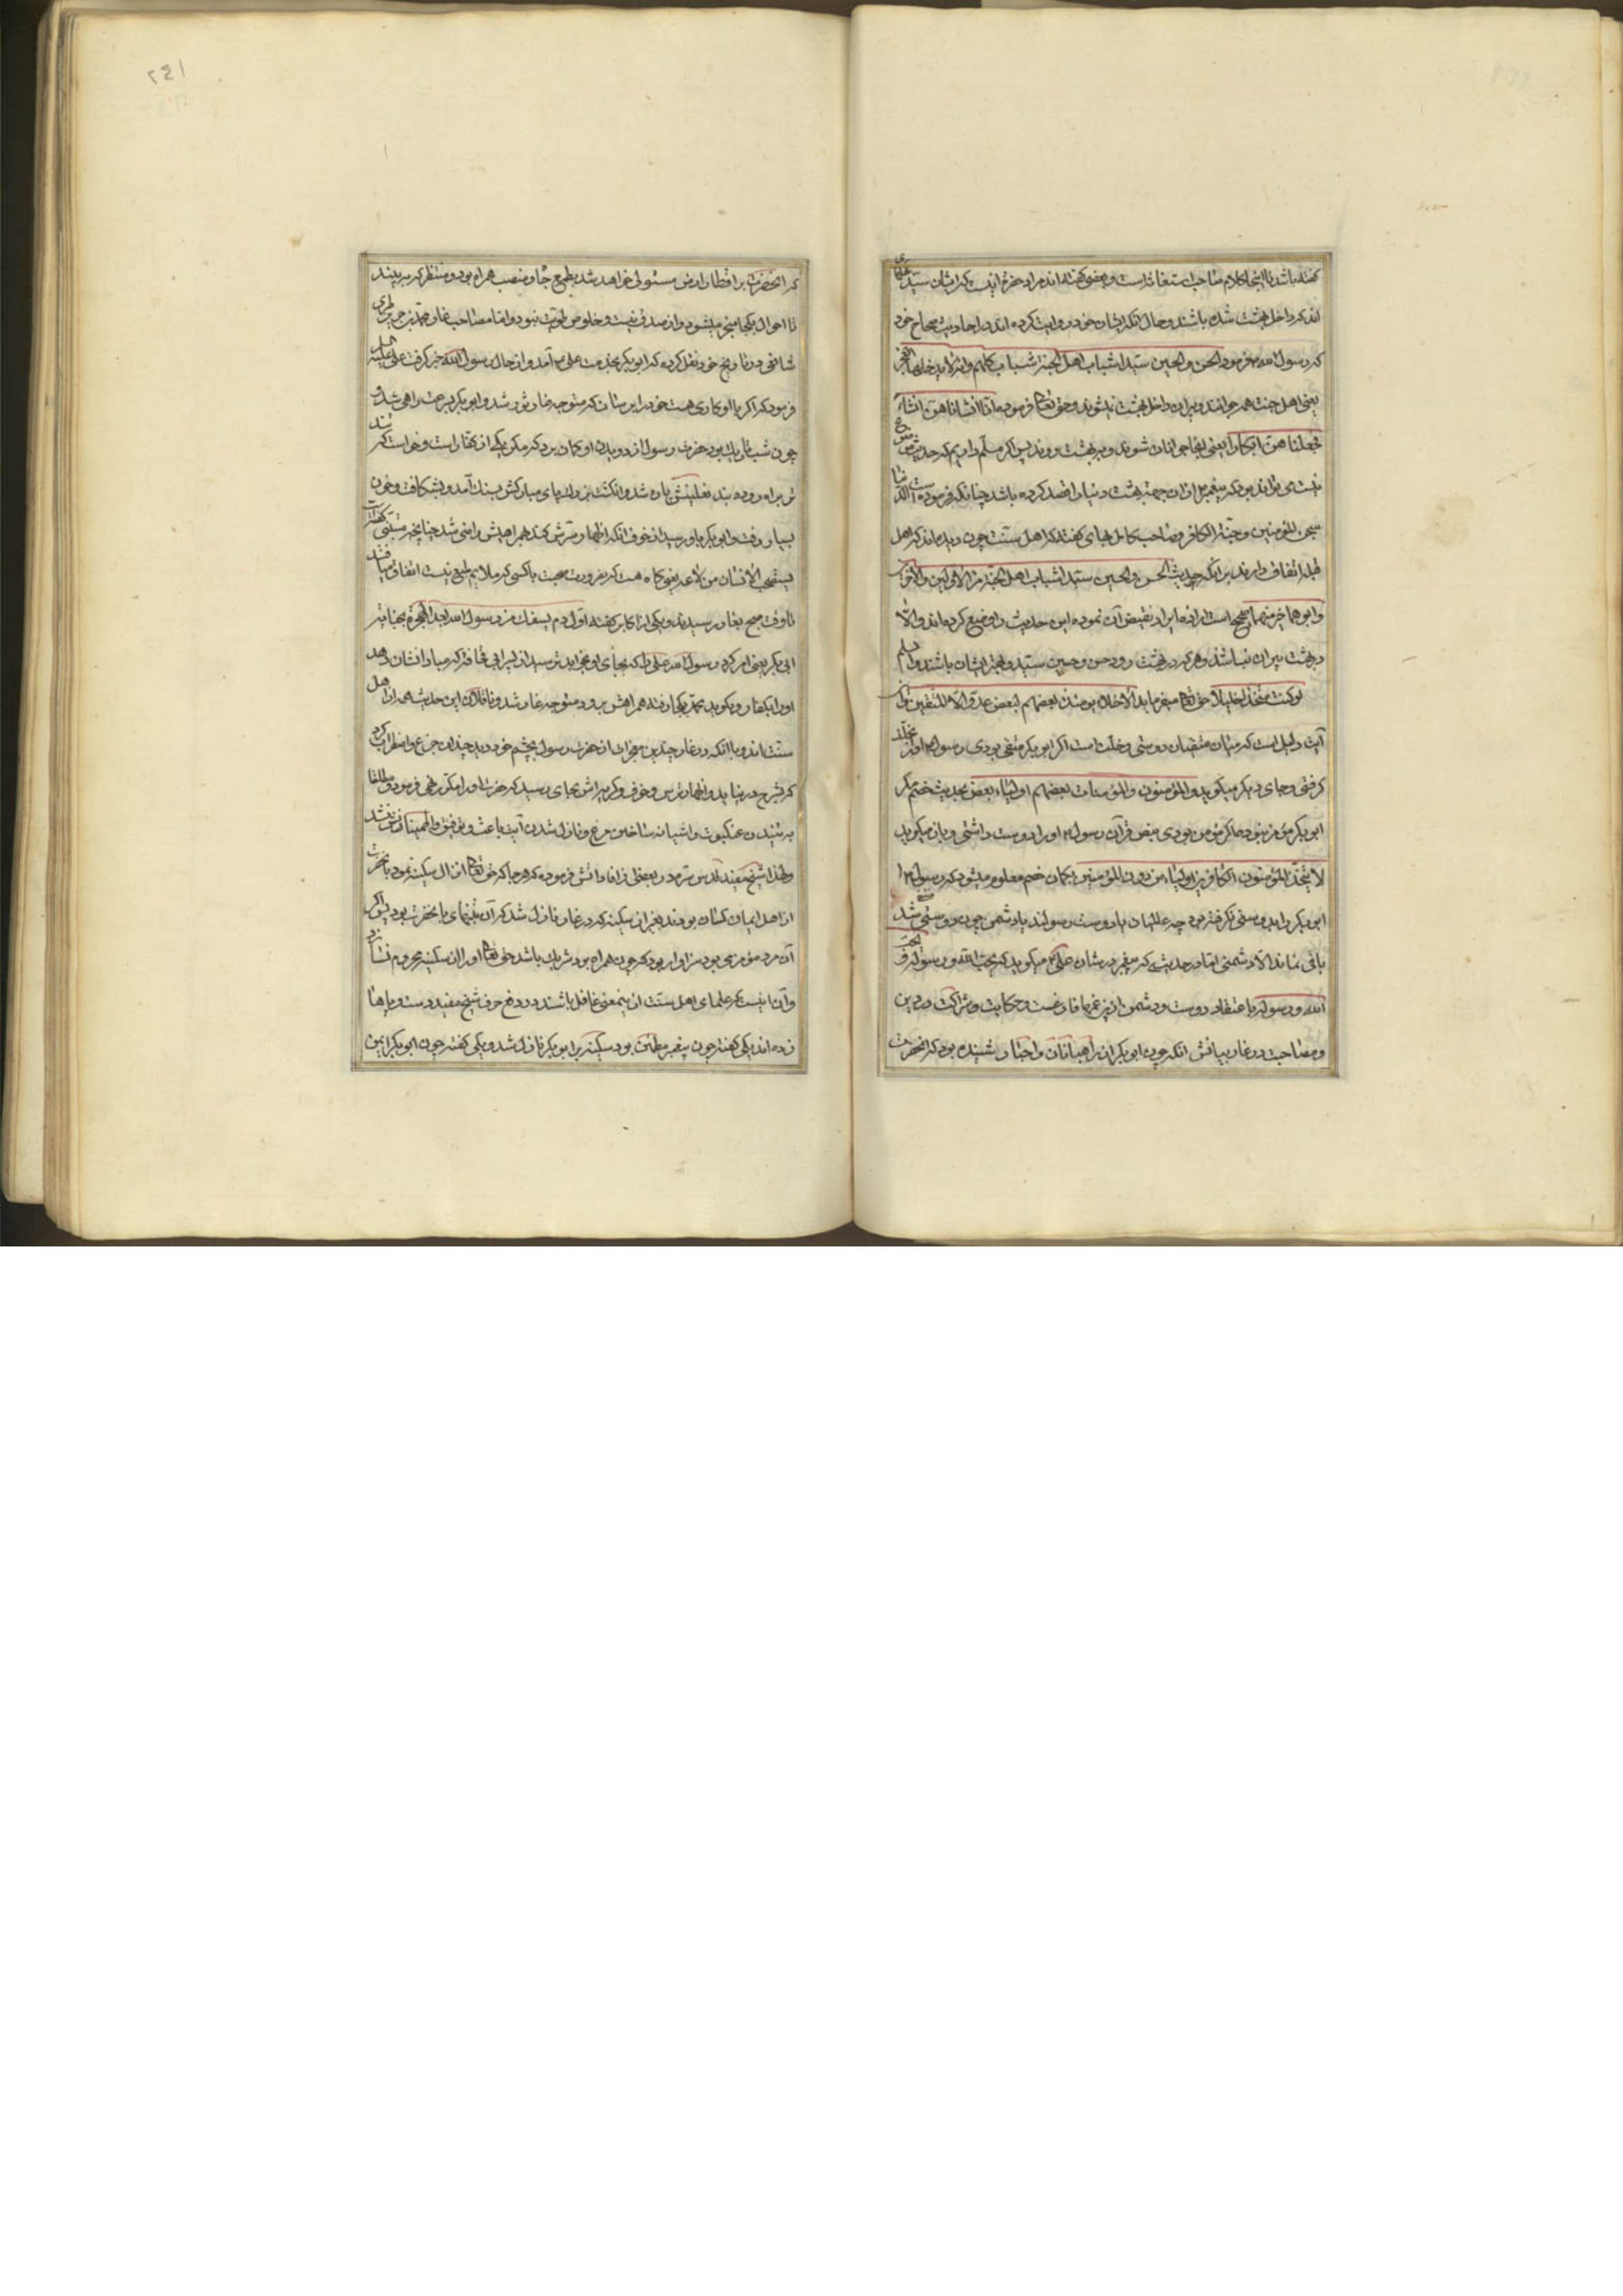 گفته باشد تا اینجا کلام صاحب استغاثه است و بعضی گفته‌اند مراد حضرة اینست که ایشان سید
اند که داخل بهشت شده باشند و حال آنکه ایشان خود روایت کرده‌اند در احادیث صحاح خود
که رسول الله فرمود الحسن و الحسین سیدا شباب اهل الجنة شباب کلهم و انه لا یدخلها العجز
یعنی اهل جنت همه جوانند و پیران داخل بهشت نمیشوند و حق تعالی فرموده انا انشاناهن انشاء
فجعلناهن ابکارا یعنی بجای جوانان شوند و به بهشت روند پس اگر مسلم داریم که حدیث
نیست می تواند بود که پیغمبر از آن جهة بهشت دنیا را قصد کرده باشد چنانکه فرموده است الدنیا
سجن المؤمنین و جنة الکافر و صاحب کامل بهای گفته که اهل سنت چون دیده‌اند که اهل
قبله اتفاق دارند بر آنکه حدیث الحسن و الحسین سیدا شباب اهل الجنة من الاولین و الآخرین
و ابوهما خیر منهما صحیح است از برای ایراد نقیض آن نموده این حدیث را وضع کرده‌اند و الا
در بهشت پیران نباشند و هر که در بهشت رود حسن و حسین سید و بهتر ایشان باشند
لو کنت متخذا خلیلا حق تعالی میفرماید الاخلاء یومئذ بعضهم لبعض عدو الا المتقین و این
آیت دلیل است که میان متقیان دوستی و خلت است اگر ابوبکر متقی بودی رسول او را
گرفتی و جای دیگر میگوید و المؤمنون و المؤمنات بعضهم اولیاء بعض بحدیث خصم مگر
ابوبکر مؤمن نبوده که اگر مؤمن بودی بنص قرآن رسول او را دوست داشتی و باز میگوید
لا یتخذ المؤمنون الکافرین اولیاء من دون المؤمنین بگمان خصم معلوم میشود که رسول
ابوبکر را بدوستی نگرفته بود چه عالمیان یا دوست رسولند یا دشمن چون دوستی شد
باقی نماند الا دشمنی اما در حدیث که پیغمبر در شان علی میگوید که یحب الله و رسوله و
الله و رسوله با عتقاد دوست و دشمن ازین غم‌ها فارغست و حکایت و شراکت در دین
و مصاحبت در غار بیانش آنکه چون ابوبکر از راهبانان و احبار شنیده بود که آنحضرت
که آنحضرت بر اقطار ارض مستولی خواهد شد بطمع جاه و منصب همراه بود و منتظر که ببیند
تا احوال بکجا منجر میشود و از صدق نیت و خلوص طویت نبود و اما مصاحب غار محمد بن جریر طبری
شافعی در تاریخ خود نقل کرده که ابوبکر بخدمت علی آمد و از حال رسول الله خبر گرفت علی علیه السلم
فرمود که اگر با او کاری هست خود را برسان که متوجه غار ثور شد و ابوبکر بسرعت راهی شد و
چون شب تاریک بود حضرت رسول از دویدن او گمان برد که مگر یکی از کفار است و خواست که
بر براه رود بند نعلینش پاره شد و انگشت بزرك پای مبارکش بسنك آمد و بشکافت و خون
بسیار رفت و ابوبکر باو رسید از خوف آنکه اظهار سرش کند بهمراهیش راضی شد چنانچه متنبی گفته
یستصحب الانسان من لا یعنی گاه هست که بضرورت صحبت با کسی که ملایم طبع نیست اتفاق میافتد
تا وقت صبح بغار رسیدند و یکی از اکابر گفته اول دم یسفك من رسول الله بعد الهجرة بجنایة
ابی بکر یعنی امر کرد رسول الله علی را که بجای او بخوابد ترسید از پسر ابی قحافه که مبادا نشان دهد
او را بکفار و بگوید محمد بکجا رفته همراهش برود متوجه غار شد و ناقلان این حدیث همه از اهل
سنت اند و با آنکه در غار چندین معجزات از حضرت رسول بچشم خود دید چندان جزع و اضطراب کرد
که شرح در نیاید و اظهار ترس و خوف و گریه‌اش بجای رسید که حضرت او را مکرر نهی فرمود و مطلقا
به تنیدن عنکبوت و اشیانه ساختن مرغ و نازل شدن آیت باعث و توفیق و اطمینان او نشد
و لهذا شیخ مفید قدس سره در بعضی از افاداتش فرموده که هر جا که حق تعالی انزال سکینه نمود با آنحضرت
از اهل ایمان کسان بودند بغیر از سکینه که در غار نازل شد که آن تنهای با آنحضرت بود پس اگر
آن مرد مؤمن می بود سزاوار بود که چون همراه بود شریك باشد حق تعالی او را از آن سکینه محروم نسازد
و آن نیست که علمای اهل سنت ازینمعنی غافل باشند در دفع حرف شیخ مفید دست و پاها
زده‌اند یکی گفته چون پیغمبر مطمئن بود سکینه بر ابوبکر نازل شد و یکی گفته چون ابوبکر ایمن
۱۴۲